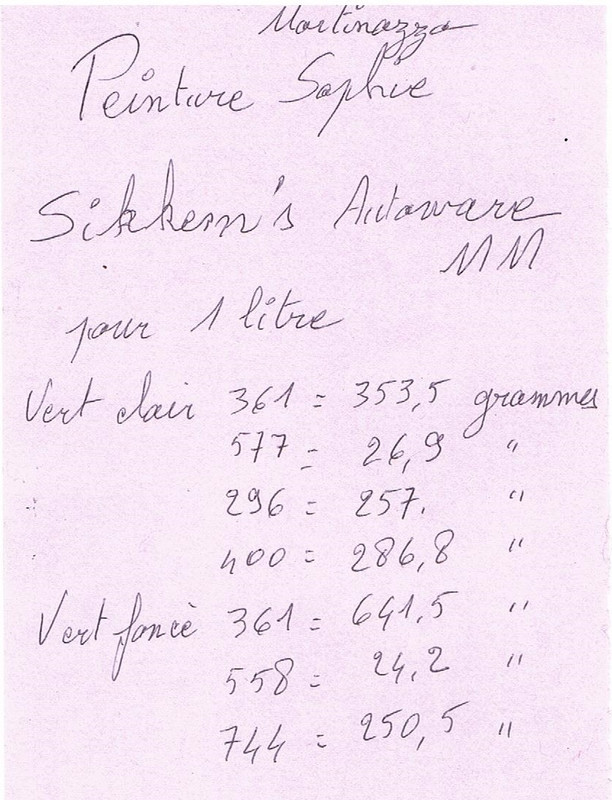 Martinazzo
Peinture Sophie
Sikkem's Autoware
MM
pour 1 litre
Vert clair 361 = 353,5 grammes
577 = 26,9 "
296 = 257. "
400 = 286,8 "
Vert foncè 361 = 641.5 "
558 = 24,2 "
744 = 250,5 "